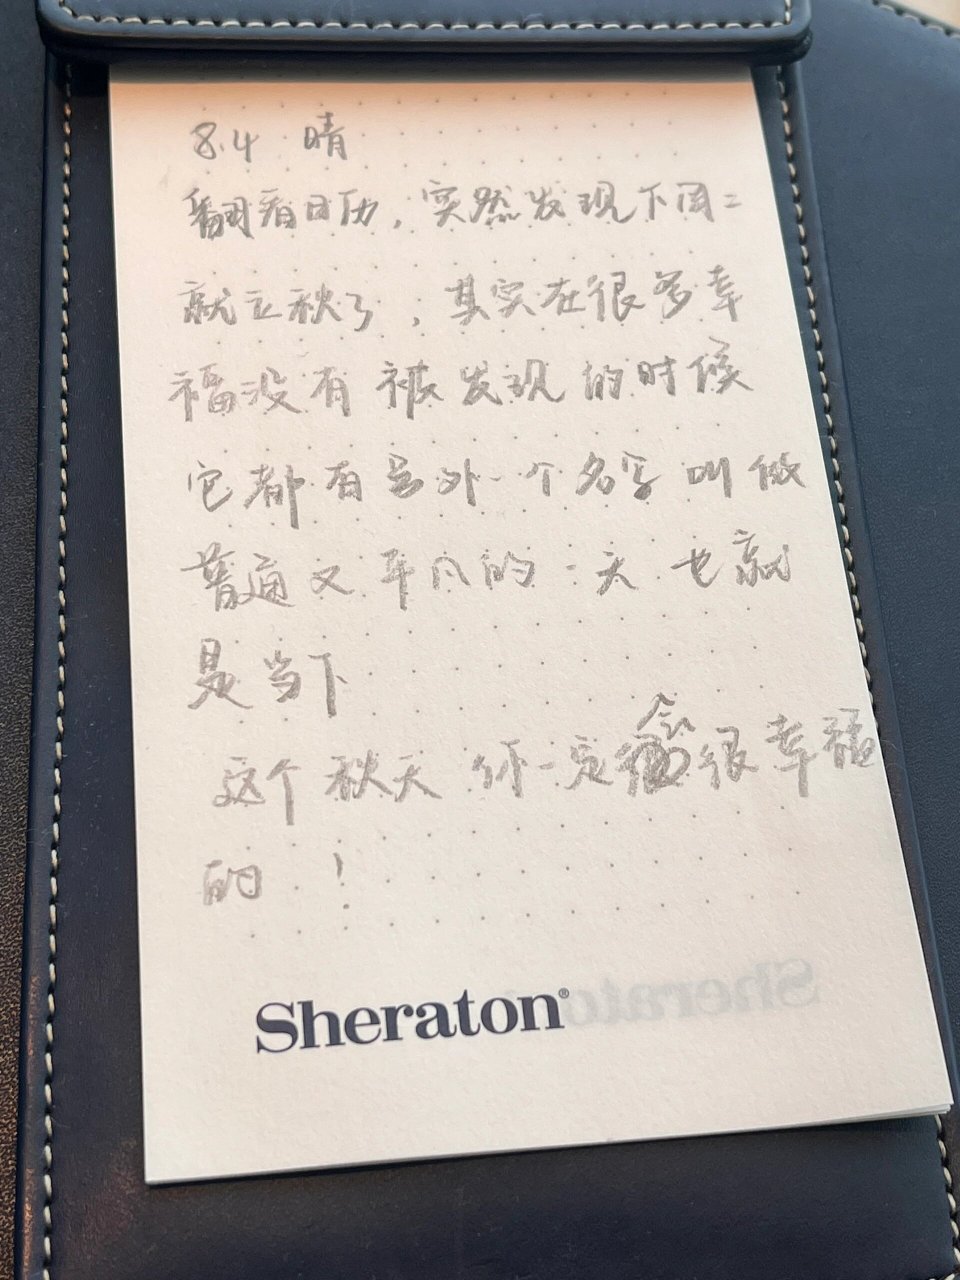 8.4 晴
翻看日历，突然发现下周二
就立秋了，其实在很多幸
福没有被发现的时候
它都有另外一个名字叫做
普通又平凡的一天 也就
是当下
这个秋天 你一定会很幸福
的！
Sheraton®